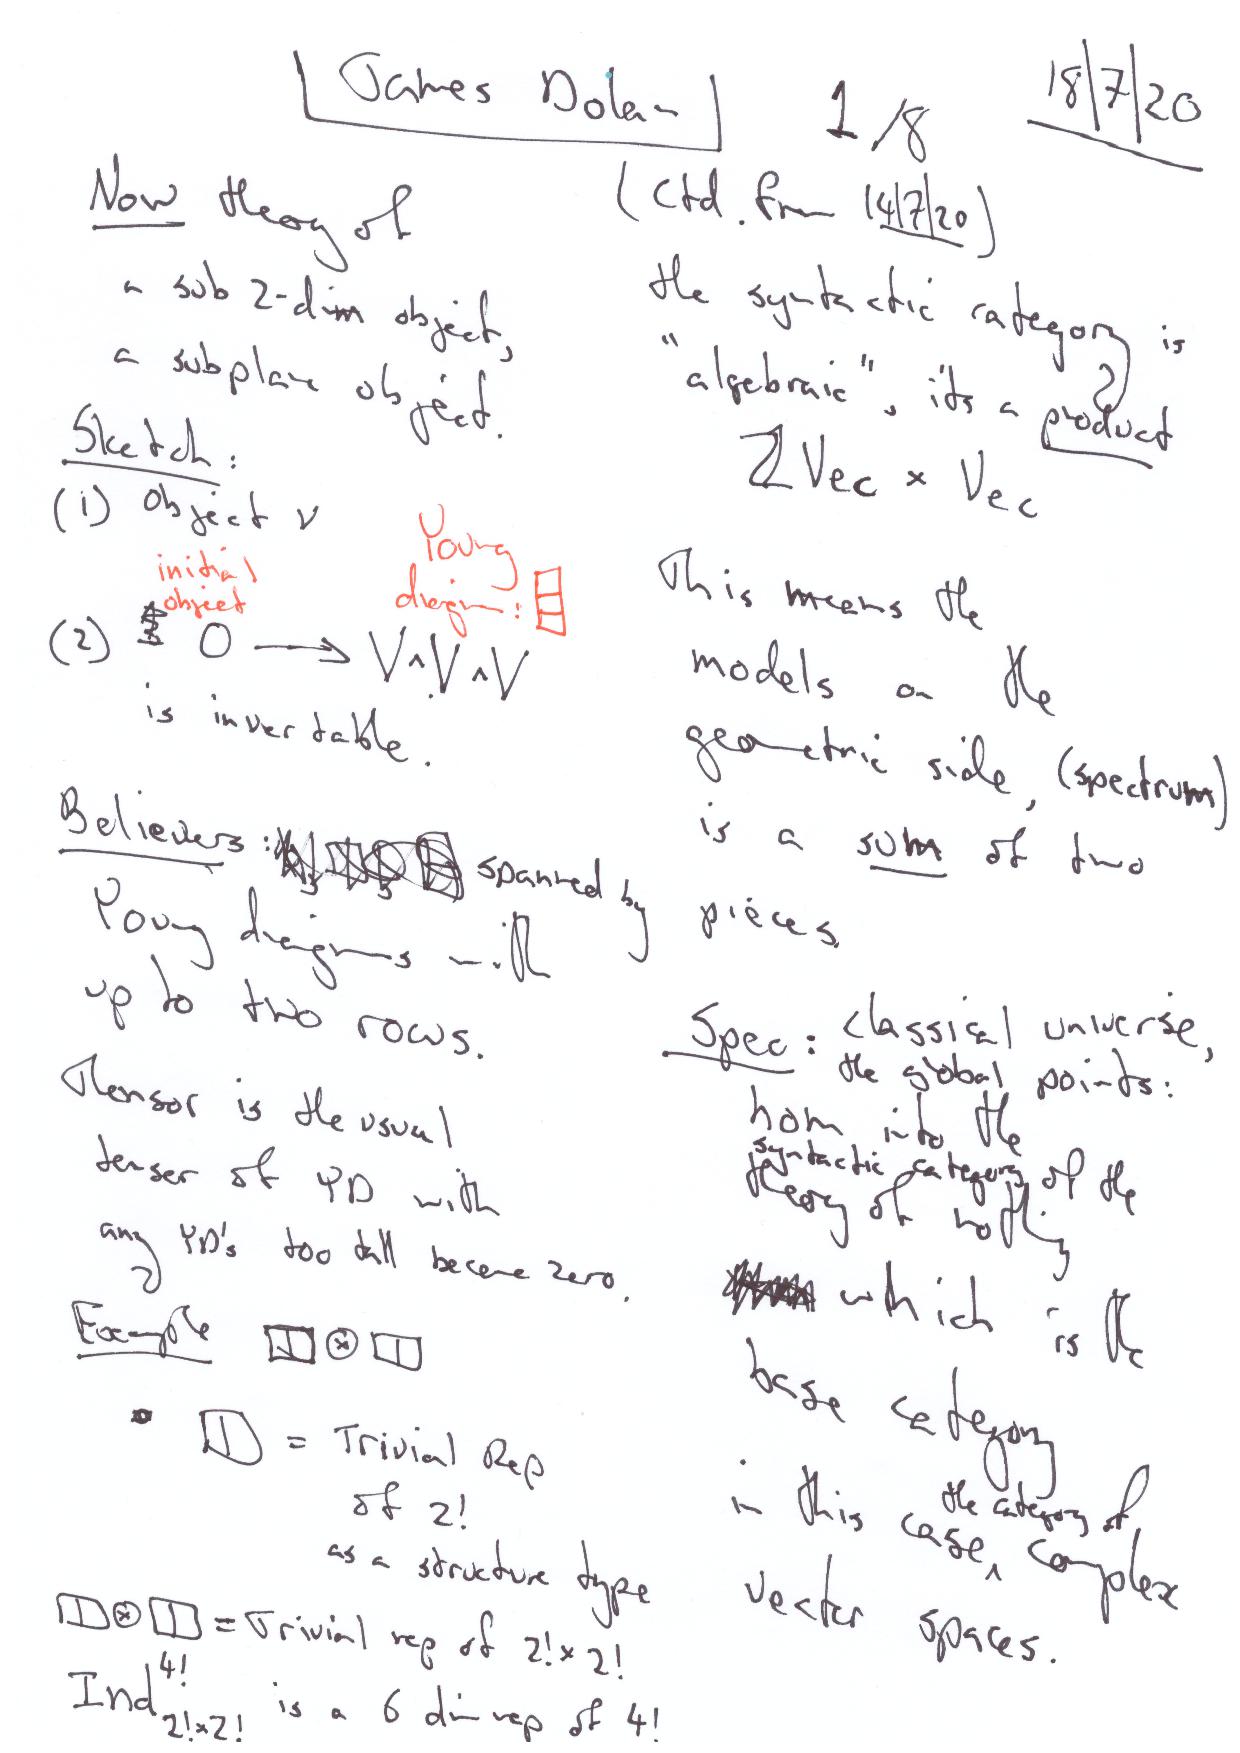 James Dolan 1/8 18/7/20
Now theory of
a sub 2-dim object,
a subplane object.
Sketch:
(1) object V
initial
object
Young
diagram:
(2) 0 → V∧V∧V
is invertable.
Believers: spanned by
Young diagrams with
up to two rows.
Tensor is the usual
tenser of YD with
any YD's too tall become zero.
Example ⊗
= Trivial Rep
of 2!
as a structure type
⊗ = Trivial rep of 2!×2!
Ind 4! 2!×2! is a 6 dim rep of 4!
(Ctd. from 14/7/20)
the syntactic category is
"algebraic", it's a product
ℤVec × Vec
This means the
models on the
geometric side, (spectrum)
is a sum of two
pieces.
Spec: classical universe,
the global points:
hom into the
syntactic category of the
theory of nothing
which is the
base category
in this case, the category of complex
vector spaces.